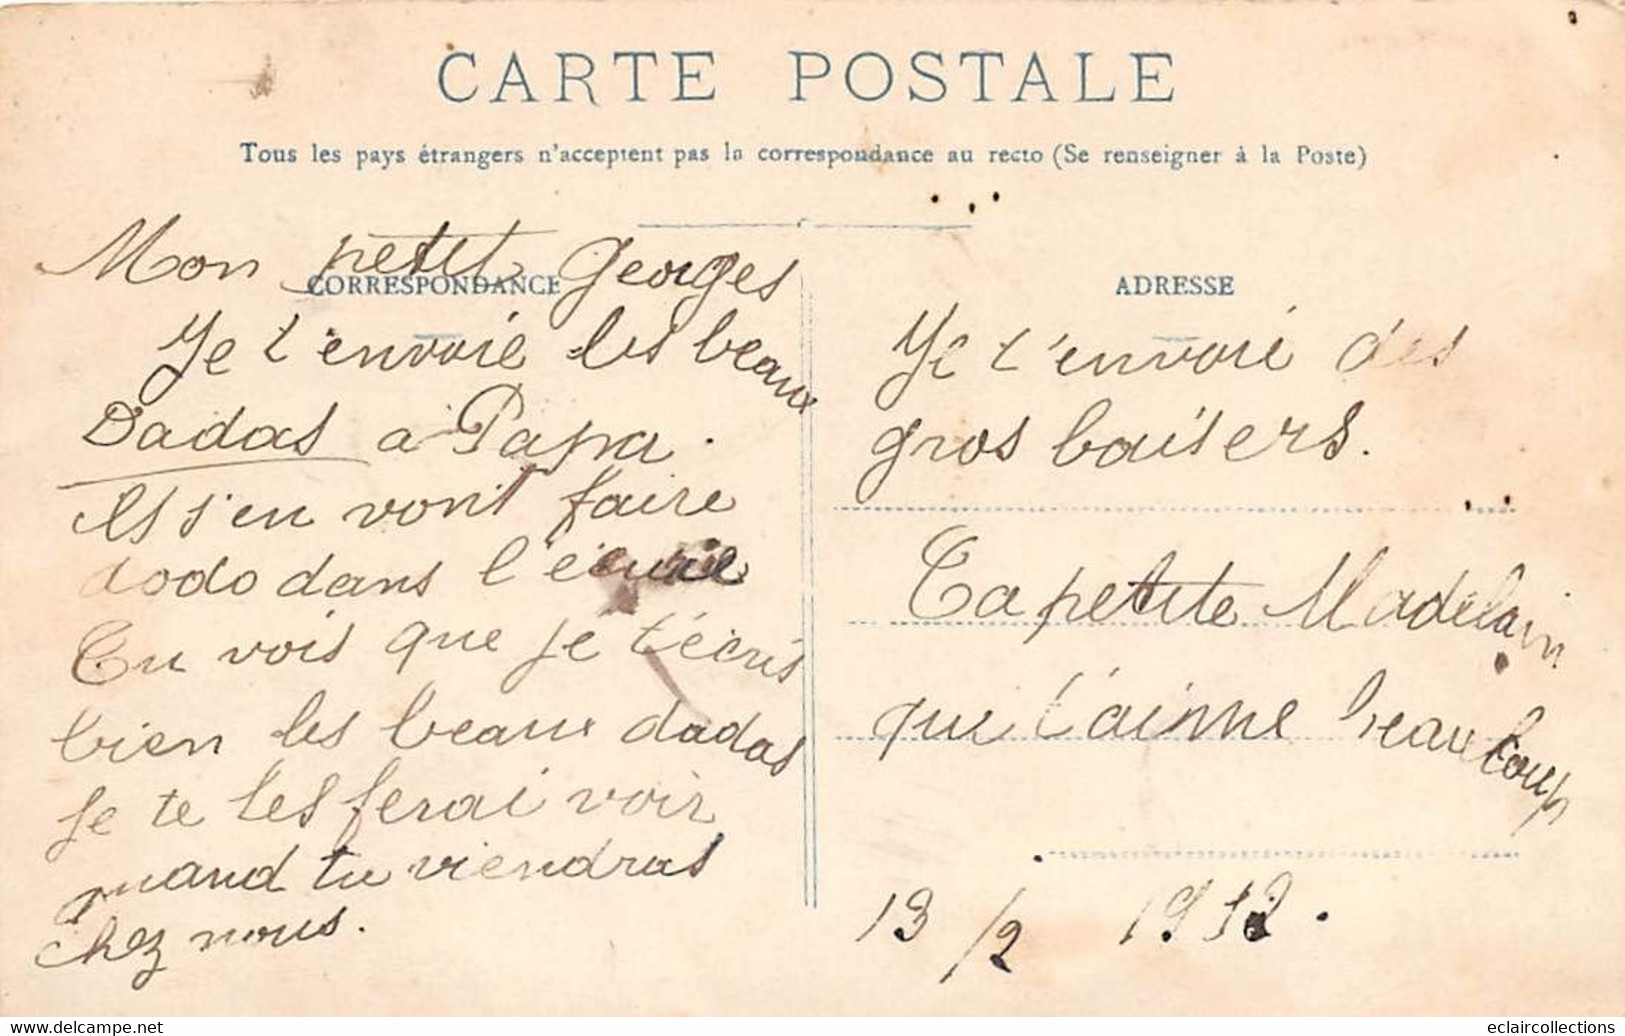 CARTE POSTALE
Tous les pays étrangers n'acceptent pas la correspondance au recto (Se renseigner à la Poste)
CORRESPONDANCE
Mon petit Georges
Je t'envoie les beaux
Dadas à Papa.
ils s'en vont faire
dodo dans l'écurie
Tu vois que je t'écris
bien les beaux dadas
je te les ferai voir
quand tu viendras
chez nous.
ADRESSE
Je t'envoie des
gros baisers.
Ta petite Madelain
que t'aime beaucoup
13/2 1912.
www.delcampe.net
eclaircollections